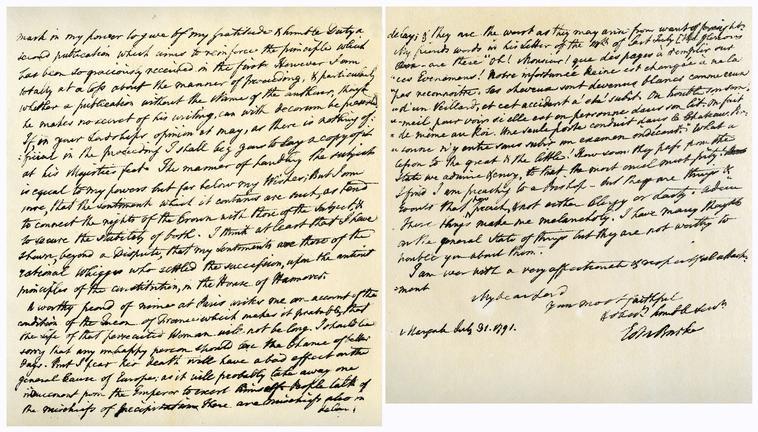 mark in my power to give of my gratitude & humble Duty a
second publication which aims to reinforce the principle which
has been so graciously received in the first. However I am
totally at a loss about the manner of proceeding, & particularly
whether a publication without the Name of the author, though
he makes no secret of his writing, can with decorum be presented
If in your Lordships opinion it may, as there is nothing of-
ficial in the proceeding I shall beg you to lay a copy of it
at his Majesties feet. The manner of handling the subject
is equal to my powers but far below my Wishes; But I am
sure, that the sentiments which it contains are such, as tend
to connect the rights of the Crown with those of the Subject &
to secure the Stability of both. I think at least that I have
shewn, beyond a Dispute, that my sentiments are those of the
rational Whiggs who settled the succession, upon the antient
principles of the constitution, in the House of Hannover.
A worthy friend of mine at Paris writes me an account of the
condition of the Queen of France which makes it probable, that
the life of that persecuted Woman will not be long. I should be
sorry that any unhappy person should lose the Chance of better
days. But I fear her death will have a bad effect on the
general Cause of Europe; as it will probably take away one
inducement from the Emperor to exert himself. People talk of
the mischiefs of precipitation. there are mischiefs also in
delay;
delay; & they are the worst as they may arise from want of foresight.
My friends words in his Letter of the of last July
are these "Oh! Monsieur! que des pages à remplir sur
"ces Evenemens! Notre infortunée Reine est changée a ne la
"pas reconnoitre. Ses cheveux sont devenus blancs comme ceux
"d'un Veillard, et cet accident a été subit. On trouble son som-
"meil pour voir si elle est en personne dans son lit. On fait
"de même au Roi. Une seule porte conduit dans le Chateau. Per-
"sonne n'y entre sans subir un examen indécent." What a
lesson to the great & the little! How soon they pass from the
State we admire & envy, to that the most cruel must pity!
I find I am preaching to a Bishop - but these are things &
words that preach, & not either Clergy or Laity. Adieu
These things make me melancholy. I have many thoughts
on the general State of things but they are not worthy to
trouble you about them.
I am ever with a very affectionate & respectful attach-
ment
My dear Lord
Your most faithful
& obedt humble Servt
Edm Burke
Margate July 31. 1791.